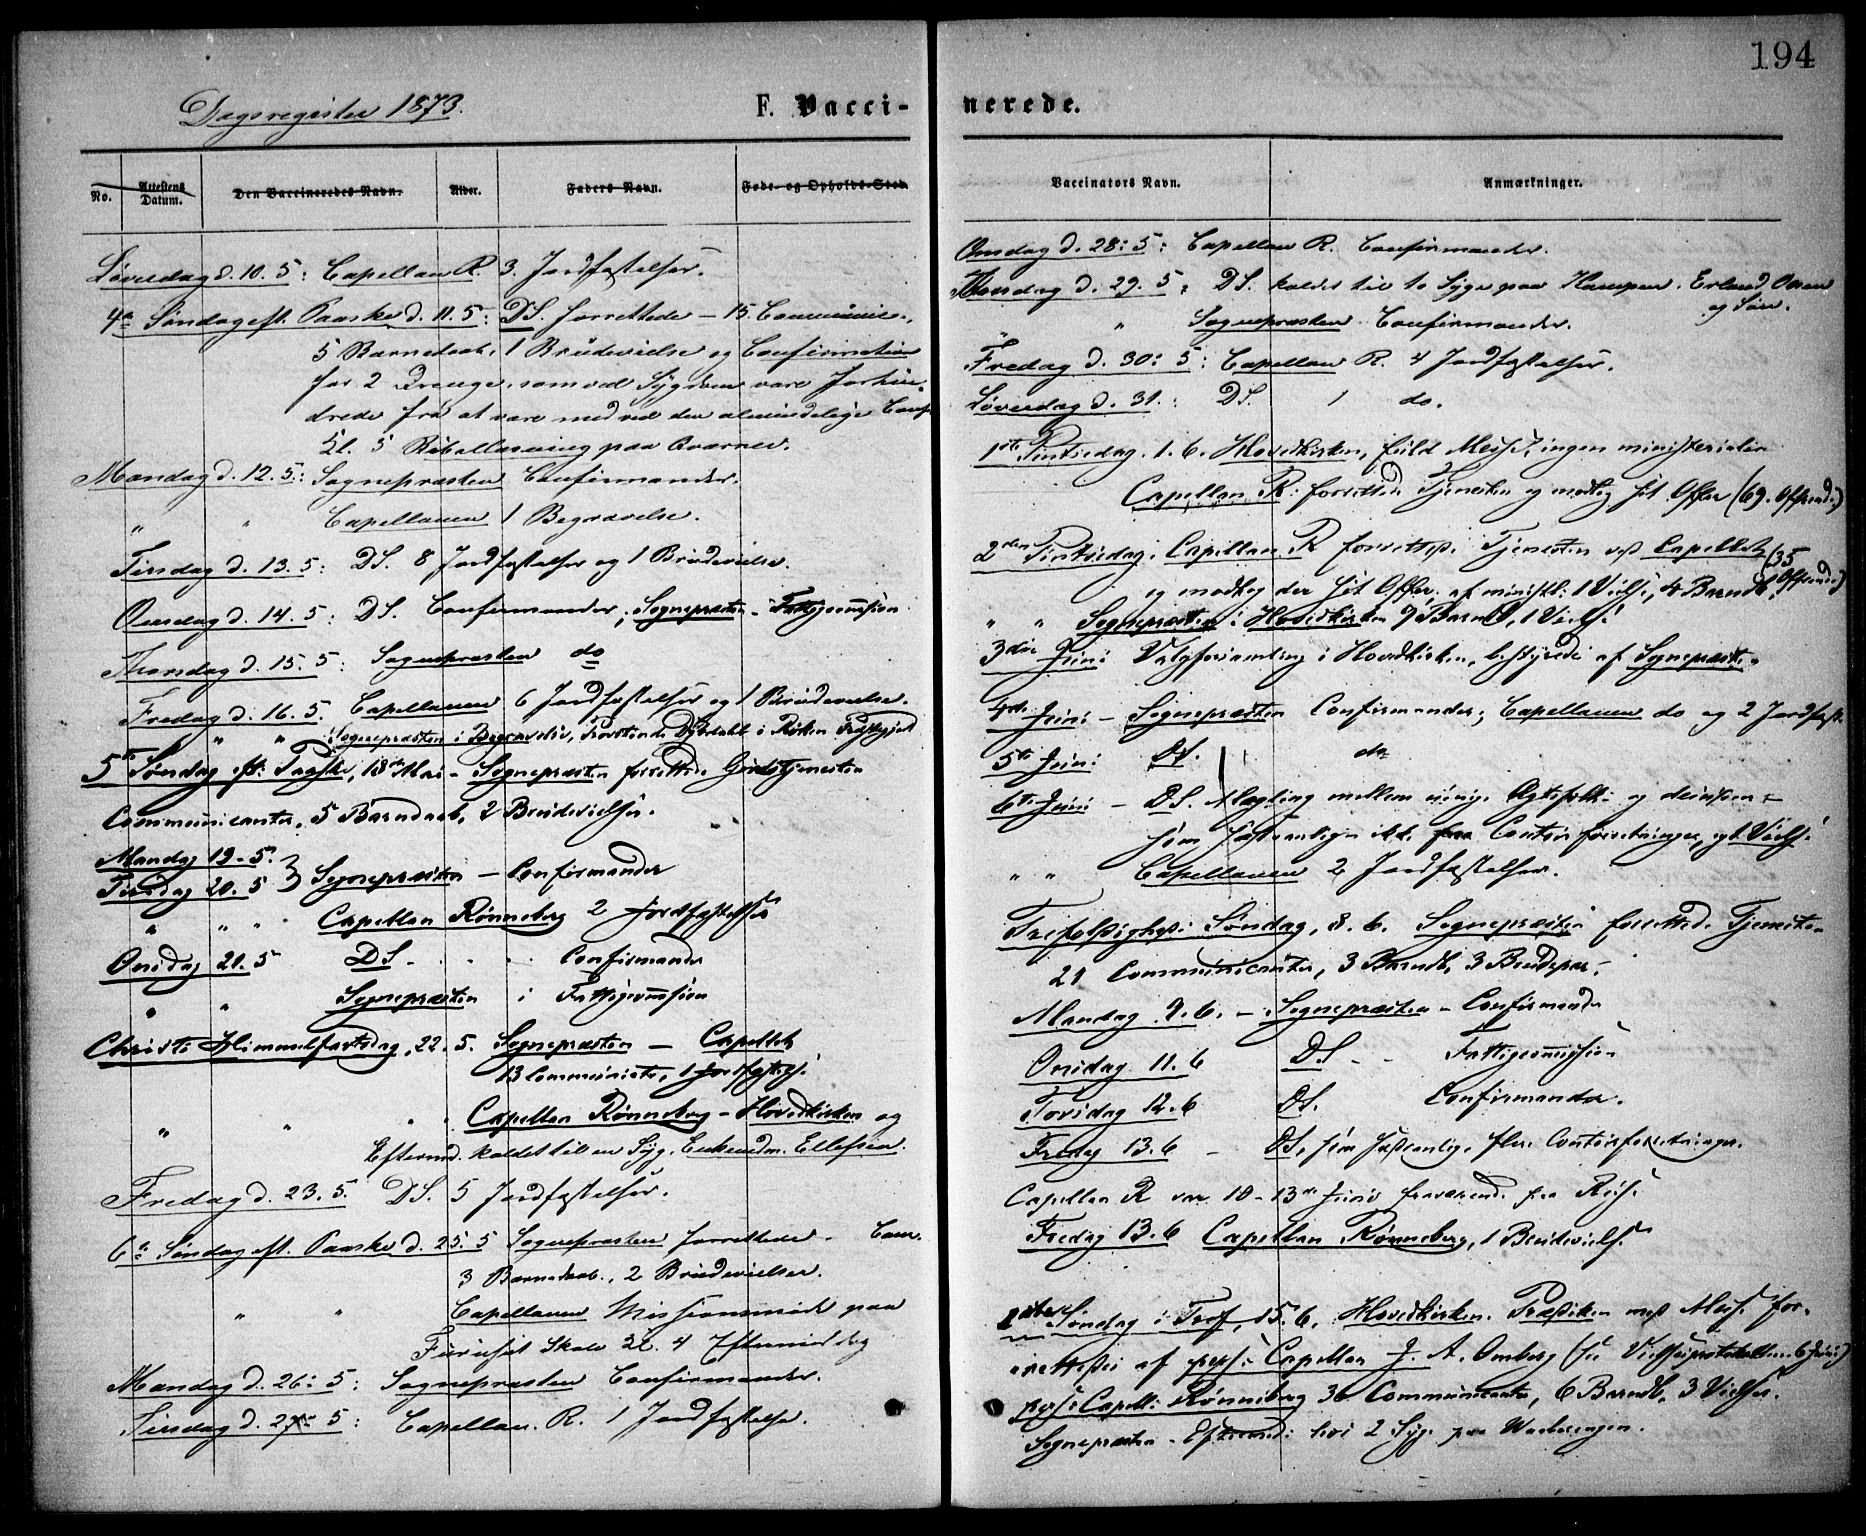 194
Dagsregister 1873.
F. Vacci-
nerede.
No.
Attestens Datum.
Den Vaccineredes Navn.
Alder.
Faders Navn.
Føde- og Opholds-Sted.
Løverdag d. 10. 5: Capellan R. 3 Jordfæstelser.
4de Søndag eft. Paaske d. 11. 5: DS. forrettede – 15 Communic.,
5 Barnedaab, 1 Brudevielse og Confirmation
for 2 Drenge, som ved Sygdom vare forhin-
drede fra at være med ved den almindelige Conf.
Kl. 5 Bibellæsning paa Kværner.
Mandag d. 12. 5: Sognepræsten Confirmander.
" " Capellanen 1 Begravelse.
Tirsdag d. 13. 5: DS. 8 Jordfæstelser og 1 Brudevielse.
Onsdag d. 14. 5: DS. Confirmander; Sognepræsten – Fattigcommission
Thorsdag d. 15. 5: Sognepræsten do
Fredag d. 16. 5. Capellanen 6 Jordfæstelser og 1 Brudevielse.
" " Sognepræsten i Begravelse, i Røken Præstegjeld
5te Søndag eft. Paaske, 18de Mai – Sognepræsten forrettede Gudstjenesten
Communicanter, 5 Barnedaab, 2 Brudevielser.
Mandag 19. 5.
Tirsdag 20. 5 } Sognepræsten – Confirmander
" " " Capellan Rønneberg 2 Jordfæstelser
Onsdag 21. 5 DS – " " Confirmander
" " Sognepræsten i Fattigcommission
Christi Himmelfartsdag, 22. 5. Sognepræsten – Capellet
13 Communicanter, 1 Jordfæstelse.
" " " Capellan Rønneberg – Hovedkirken og
Eftermd. kaldet til en Syg, Enkemdm. Ellefsen.
Fredag d. 23. 5. DS. 5 Jordfæstelser.
6te Søndag eft. Paaske d. 25. 5 Sognepræsten forrettede – Com.
3 Barnedaab, 2 Brudevielser.
" " Capellanen Missionsmøde paa
Furuset Skole Kl. 4 Eftermiddag
Mandag d. 26: 5: Sognepræsten Confirmander.
Tirsdag d. 27: 5: Capellan. R. 1 Jordfæstelse.
Vaccinators Navn.
Anmærkninger.
Onsdag d. 28: 5: Capellan R. Confirmander.
Thorsdag d. 29. 5: DS. kaldet til to Syge paa Kampen. Erland Olsen
og Søn.
" " Sognepræsten Confirmander.
Fredag d. 30: 5: Capellan R. 4 Jordfæstelser.
Løverdag d. 31.: DS. 1 do.
1ste Pintsedag. 1. 6. Hovedkirken, fuld Messe, ingen ministerialia
Capellan R. forrettede Tjenesten og modtog sit Offer (69. Offrende.)
2den Pintsedag. Capellan R forrettede Tjenesten ved Capellet (35
og modtog der sit Offer, af minist: 1 Vielse, 4 Barnedb. Offrende)
" " Sognepræsten i Hovedkirken 9 Barnedb, 1 Vielse
3die Juni Valgforsamling i Hovedkirken, bestyredes af Sognepræsten
4de Juni – Sognepræsten Confirmander; Capellanen do og 2 Jordfæst.
5te Juni DS. do
6te Juni – DS. Mægling mellem uenige Ægtefolk og desuden –
som sædvanlig Contoirforretninger, og 1 Vielse
" " Capellanen 2 Jordfæstelser.
Trefoldigheds Søndag, 8. 6. Sognepræsten forrettede Tjenesten
21 Communicanter, 3 Barndb, 3 Brudepar –
Mandag 9. 6. – Sognepræsten – Confirmander
Onsdag 11. 6 DS – – Fattigcommission
Torsdag 12. 6 DS. Confirmander.
Fredag 13. 6 – DS, som sædvanlig, flere Contoirforretninger.
Capellan R var 10 – 13de Juni fraværende paa Reise
Fredag 13. 6 Capellan Rønneberg, 1 Brudevielse
1ste Søndag i Tref, 15. 6. Hovedkirken. Prædiken med Messe for-
rettedes af pers: Capellan J. A. Omberg (se Vielsesprotokollen 6 Juni)
pers: Capell: Rønneberg 36 Communicanter, 6 Barndb, 3 Vielser.
Sognepræsten – Eftermd: hos 2 Syge paa Waalerengen.